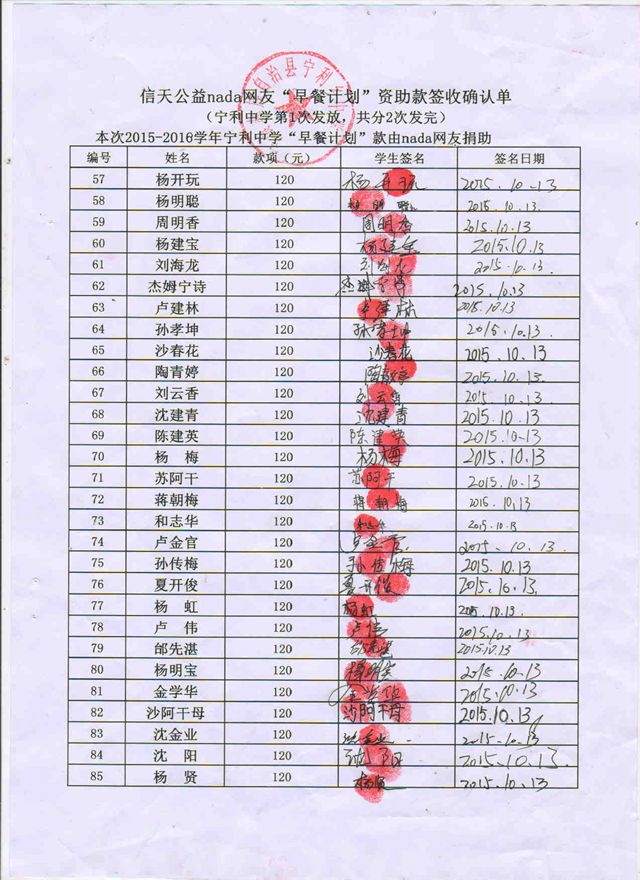 自治县宁利
信天公益nada网友“早餐计划”资助款签收确认单
（宁利中学第1次发放，共分2次发完）
本次2015-2016学年宁利中学“早餐计划”款由nada网友捐助
编号 姓名 款项（元） 学生签名 签名日期
57 杨开玩 120 杨开玩 2015.10.13
58 杨明聪 120 杨明聪 2015.10.13.
59 周明香 120 周明香 2015.10.13
60 杨建宝 120 杨建宝 2015.10.13
61 刘海龙 120 刘海龙 2015.10.13.
62 杰姆宁诗 120 杰姆宁诗 2015.10.13
63 卢建林 120 卢建林 2015.10.13
64 孙孝坤 120 孙孝坤 2015.10.13
65 沙春花 120 沙春花 2015.10.13
66 陶青婷 120 陶青婷 2015.10.13
67 刘云香 120 刘云香 2015.10.13
68 沈建青 120 沈建青 2015.10.13
69 陈建英 120 陈建英 2015.10.13
70 杨 梅 120 杨梅 2015.10.13
71 苏阿干 120 苏阿干 2015.10.13
72 蒋朝梅 120 蒋朝梅 2015.10.13
73 和志华 120 和志华 2015.10.13
74 卢金官 120 卢金官 2015.10.13.
75 孙传梅 120 孙传梅 2015.10.13
76 夏开俊 120 夏开俊 2015.10.13.
77 杨 虹 120 杨虹 2015.10.13.
78 卢 伟 120 卢伟 2015.10.13
79 邰先湛 120 2015.10.13
80 杨明宝 120 杨明宝 2015.10.13
81 金学华 120 金学华 2015.10.13
82 沙阿干母 120 沙阿干母 2015.10.13
83 沈金业 120 沈金业 2015.10.13
84 沈 阳 120 沈阳 2015.10.13.
85 杨 贤 120 杨贤 2015.10.13